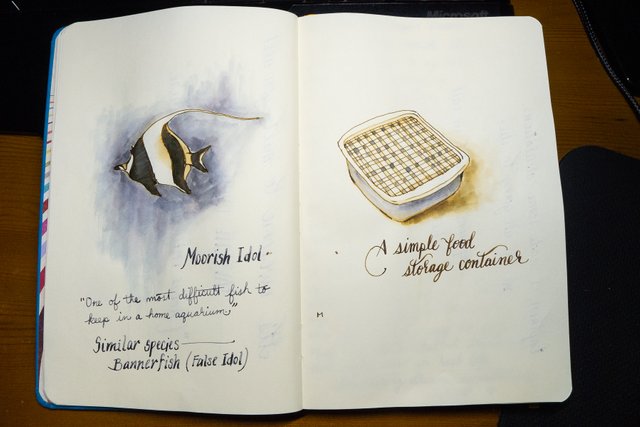 Microsoft
Moorish Idol
"One of the most difficult fish to
keep in a home aquarium"
Similar species
Bannerfish (False Idol)
A simple food
storage container
M